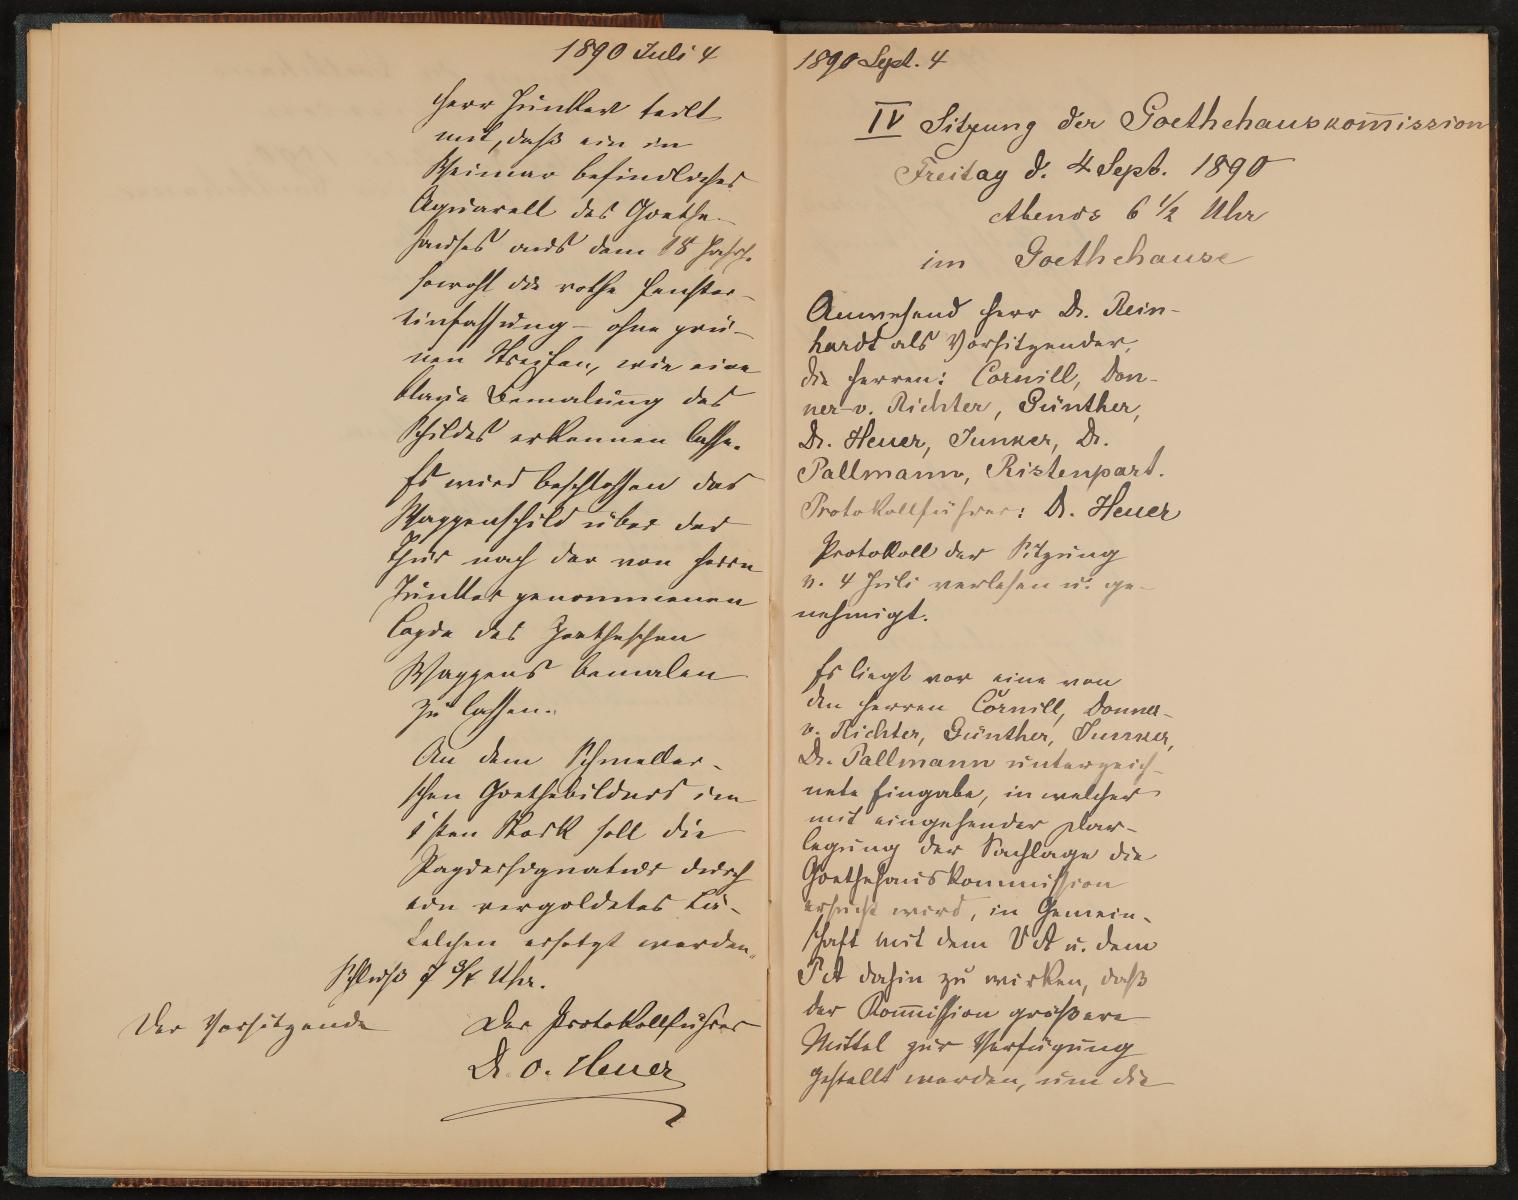 1890 Juli 4
Herr Junker teilt
mit, daß ein in
Weimar befindliches
Aquarell des Goethe-
hauses aus dem 18 Jahrh.
sowohl die rothe Fenster-
einfassung – ohne grü-
nen Streifen, wie eine
blaue Bemalung des
Schildes erkennen lasse.
Es wird beschlossen das
Wappenschild über der
Thür nach der von Herrn
Junker genommenen
Copie des Goetheschen
Wappens bemalen
zu lassen.
An dem Schmeller-
schen Goethebildnis im
1sten Stock soll die
Papiersignatur durch
ein vergoldetes Tä-
felchen ersetzt werden.
Schluß 7 3/4 Uhr.
Der Vorsitzende
Der Protokollführer
Dr. O. Heuer
1890 Sept. 4
IV Sitzung der Goethehauskom̅ission
Freitag d. 4 Sept. 1890
Abends 6 1/2 Uhr
im Goethehause
Anwesend Herr Dr. Rein-
hardt als Vorsitzender,
die Herren: Cornill, Don-
ner-v. Richter, Günther,
Dr. Heuer, Junker, Dr.
Pallmann, Ristenpart.
Protokollführer: Dr. Heuer
Protokoll der Sitzung
v. 4 Juli verlesen u. ge-
nehmigt.
Es liegt vor eine von
den Herren Cornill, Donner-
v. Richter, Günther, Junker,
Dr. Pallmann unterzeich-
nete Eingabe, in welcher
mit eingehender Dar-
legung der Sachlage die
Goethehauskommission
ersucht wird, in Gemein-
schaft mit dem VA u. dem
PA dahin zu wirken, daß
der Kom̅ission größere
Mittel zur Verfügung
gestellt werden, um die